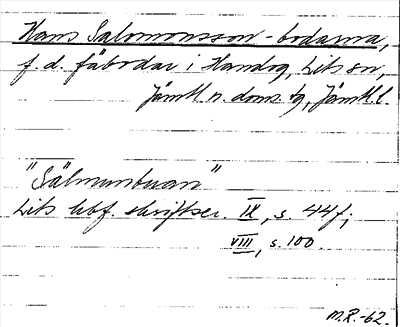 Hans Salomonsson-bodarna,
f.d. fäbodar i Handog, Lits sn,
Jämtl. n. doms. tg, Jämtl. l.
"Sälmunbuan"
Lits hbf. skriftser. IX, s. 44f;
VIII, s. 100
M.R.-62.